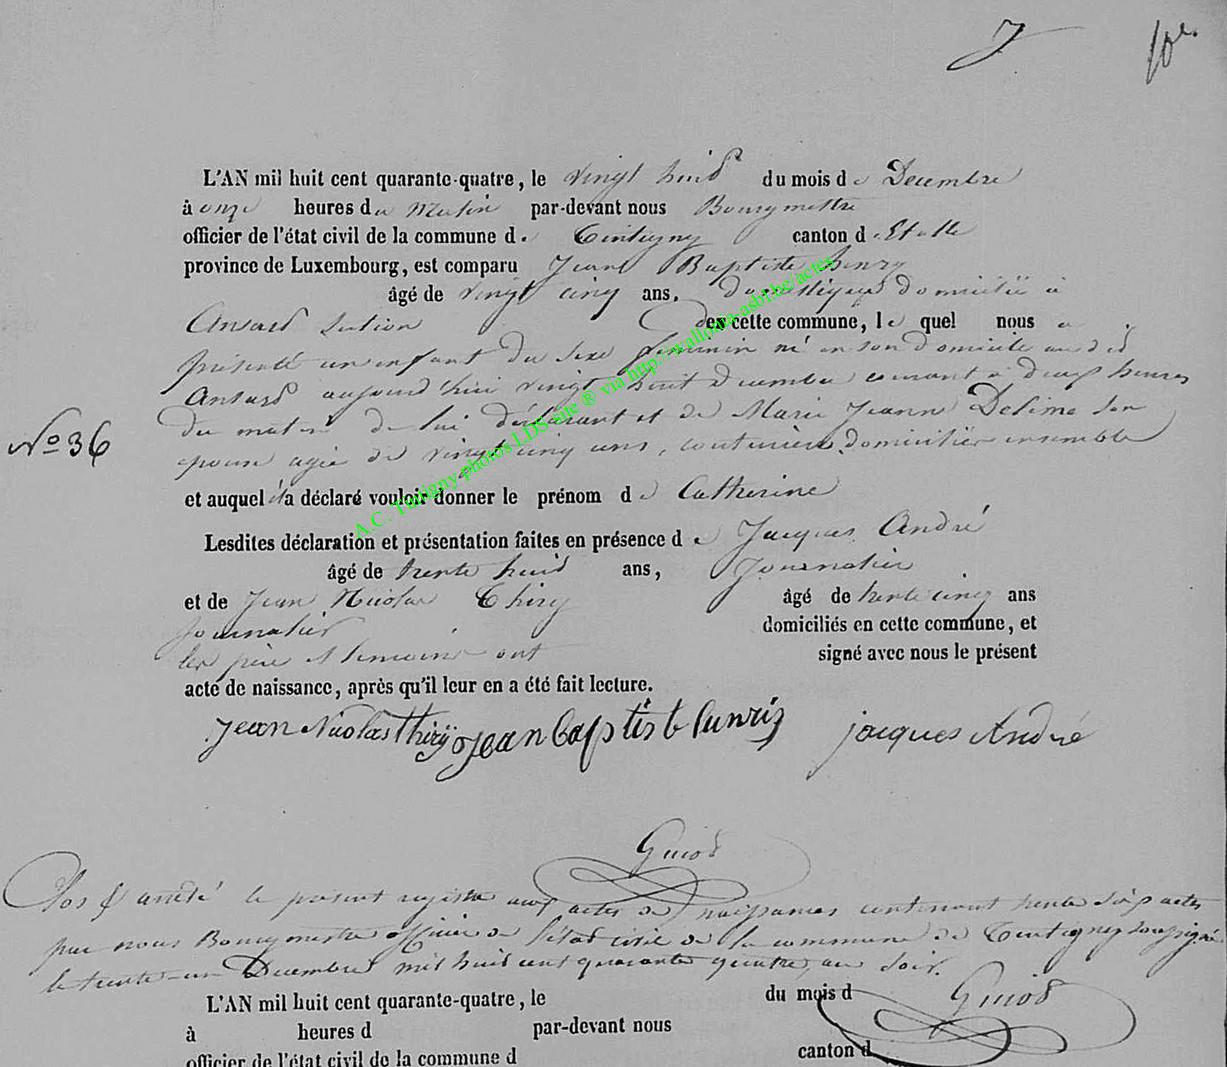 7 10e.
L'AN mil huit cent quarante-quatre, le vingt huit du mois de Decembre
à onze heures du Matin par-devant nous Bourgmestre
officier de l'état civil de la commune de Tintigny canton d'Etalle
province de Luxembourg, est comparu Jean Baptiste henry
âgé de vingt cinq ans, domestique domicilié à
Ansart Section de cette commune, lequel nous a
présenté un enfant du sexe féminin né en son domicile audit
Ansart aujourd'hui vingt huit Decembre courant à deux heures
du matin de lui déclarant et de Marie Jeanne Son
epouse agée de vingt cinq ans, couturière domiciliée ensemble
No 36
et auquel il a déclaré vouloir donner le prénom de Catherine
Lesdites déclaration et présentation faites en présence de Jacques André
âgé de trente huit ans, Journalier
et de Jean Nicolas Thiry âgé de trente cinq ans
Journalier domiciliés en cette commune, et
les père et temoins ont signé avec nous le présent
acte de naissance, après qu'il leur en a été fait lecture.
Jean Nicolas Thiry Jean baptist jacques André
Guiot
Clos & arrêté le présent registre aux actes de naissances contenant trente six actes
par nous Bourgmestre officier de l'état civil de la commune de Tintigny soussigné
le trente-un Decembre mil huit cent quarante quatre, au soir.
Guiot
L'AN mil huit cent quarante-quatre, le du mois d
à heures d par-devant nous
officier de l'état civil de la commune d canton d
A.C. Tintigny photos LDS site ® via http://wallonia-asbl.be/actes